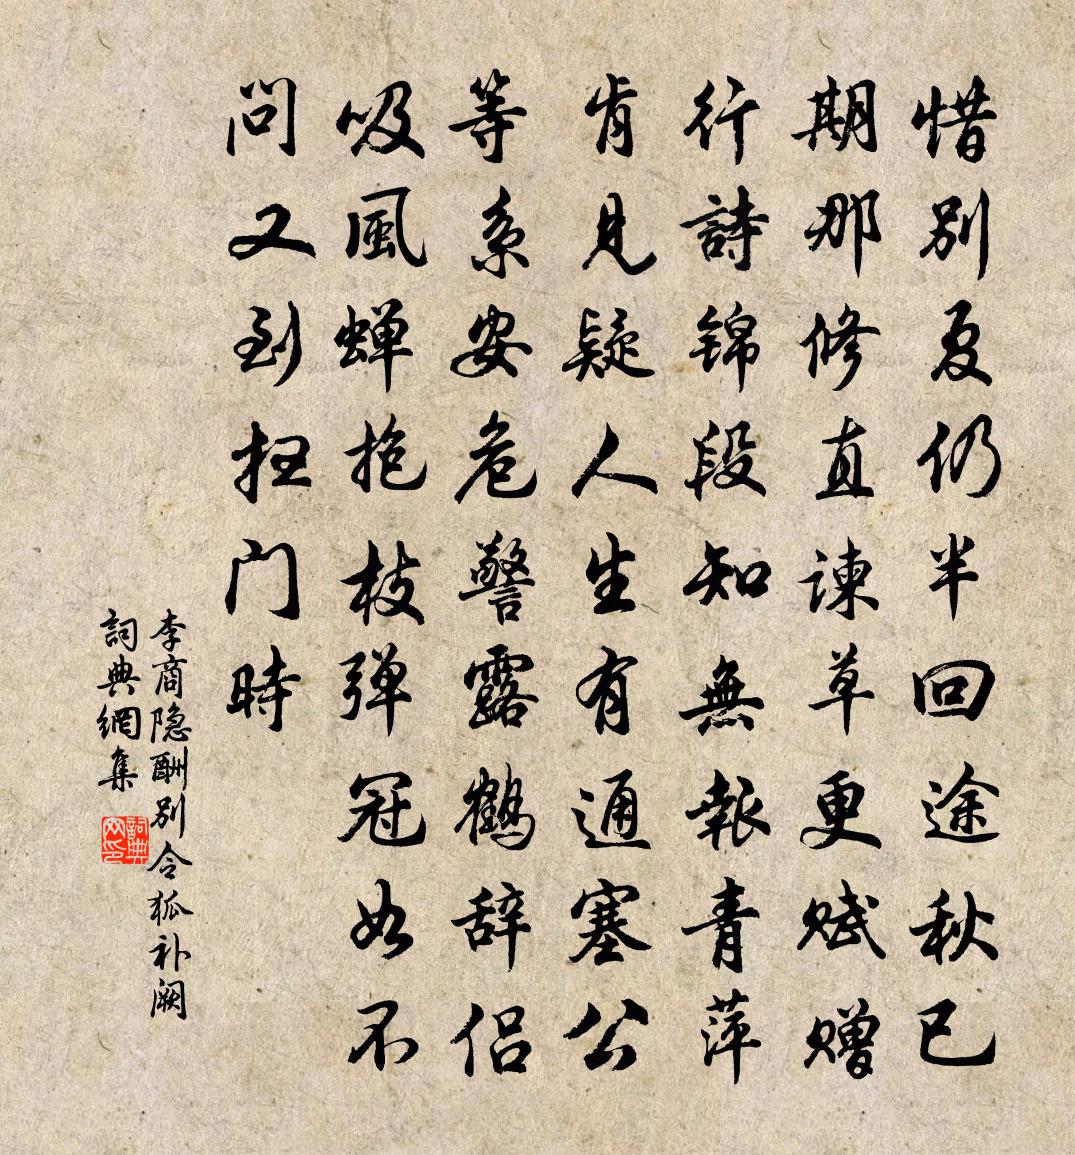 惜别夏仍半回途秋已
期那修直諫草更赋赠
行詩锦段知無報青萍
肯見疑人生有通塞公
等系安危警露鶴辞侣
吸風蝉抱枝弹冠如不
問又到扫门時
李商隐酬别令狐补阙
詞典網集
詞典网印